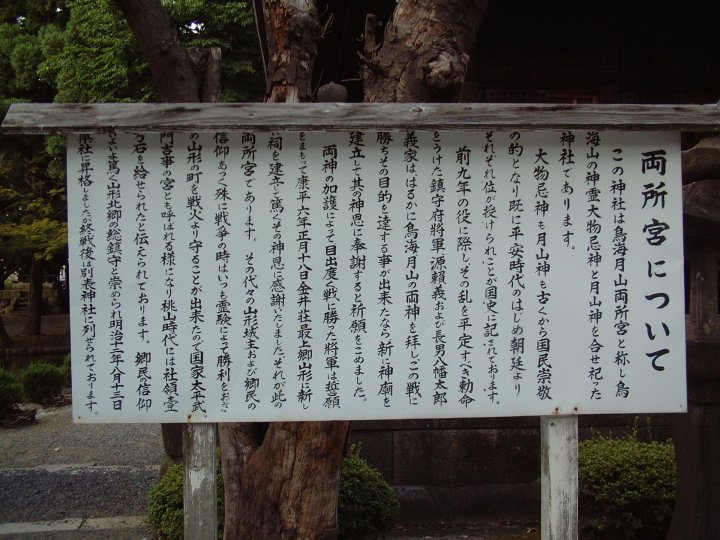 両所宮について
この神社は鳥海月山両所宮と称し鳥
海山の神霊大物忌神と月山神を合せ祀った
神社であります。
大物忌神も月山神も古くから国民崇敬
の的となり既に平安時代のはじめ朝廷より
それぞれ位が授けられことが国史に記されております。
前九年の役に際し、その乱を平定すべき勅命
をうけた鎮守府将軍源頼義および長男八幡太郎
義家ははるかに鳥海月山の両神を拝し、この戦に
勝ちその目的を達する事が出来たなら新に神廟を
建立して其の神恩に奉謝すると祈願をこめました。
両神の加護によって目出度く戦に勝った将軍は誓願
をまもって康平六年正月十八日金井荘最上郷山形に新し
い祠を建立し篤くその神恩に感謝いたしました。それが此の
両所宮であります。その代々の山形城主および郷民の
信仰あつく殊に戦争の時はいつも霊験によって勝利をおさ
め山形の町を戦火より守ることが出来たので国家太平武
門吉事の宮とも呼ばれる様になり桃山時代には社領壹
万石を給せられたと伝えられております。郷民の信仰
いよいよ篤く山形北郷の総鎮守と崇められ明治十二年八月十三日
県社に昇格しました。終戦後は別表神社に列せられております。